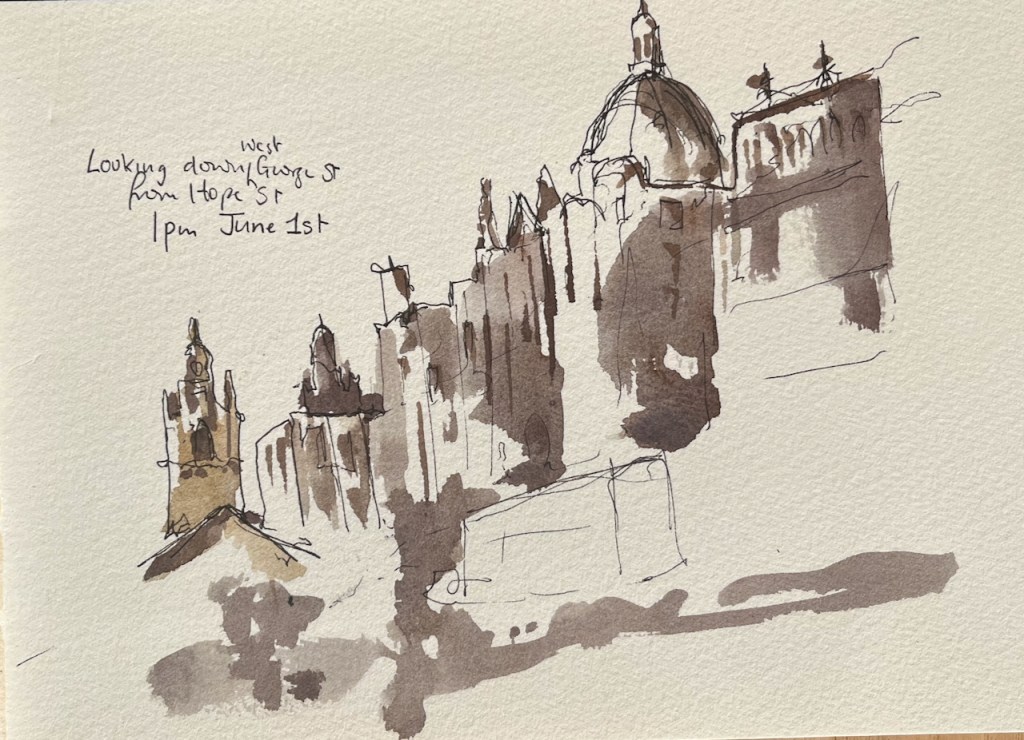 Looking down west George St
from Hope St
1pm June 1st